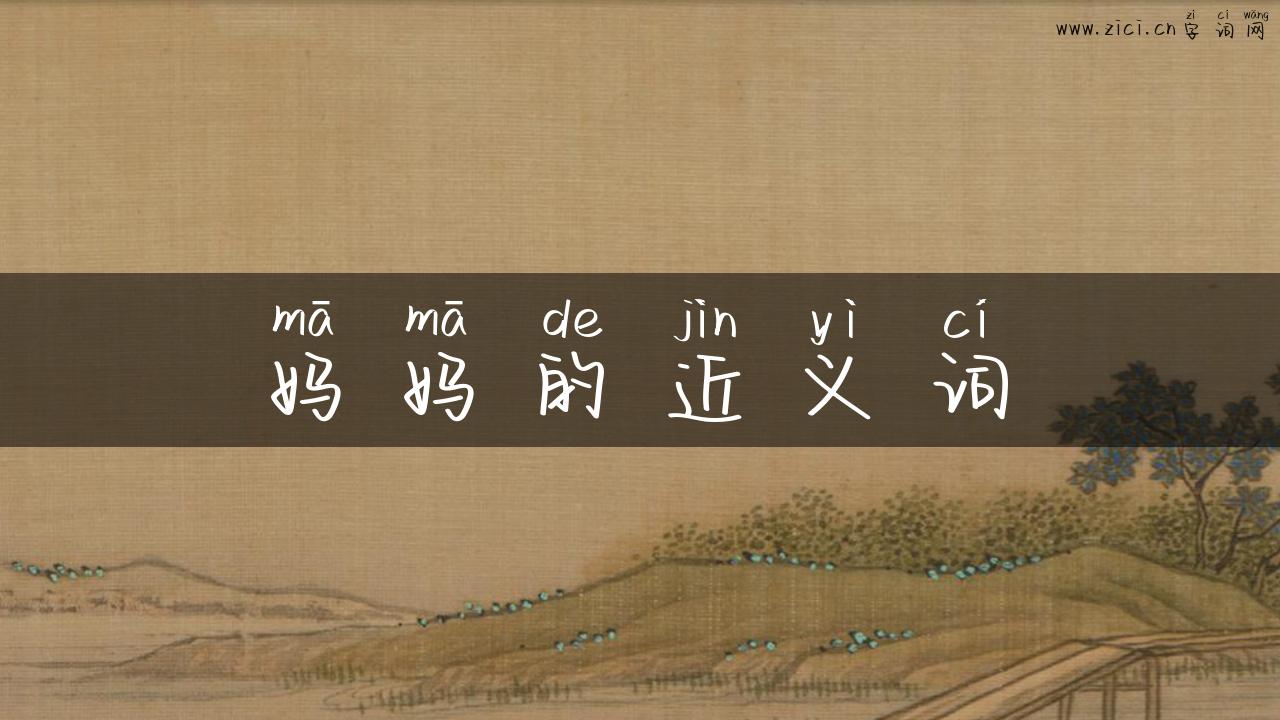 zì cí wǎng
www.zici.cn字词网
mā mā de jìn yì cí
妈妈的近义词